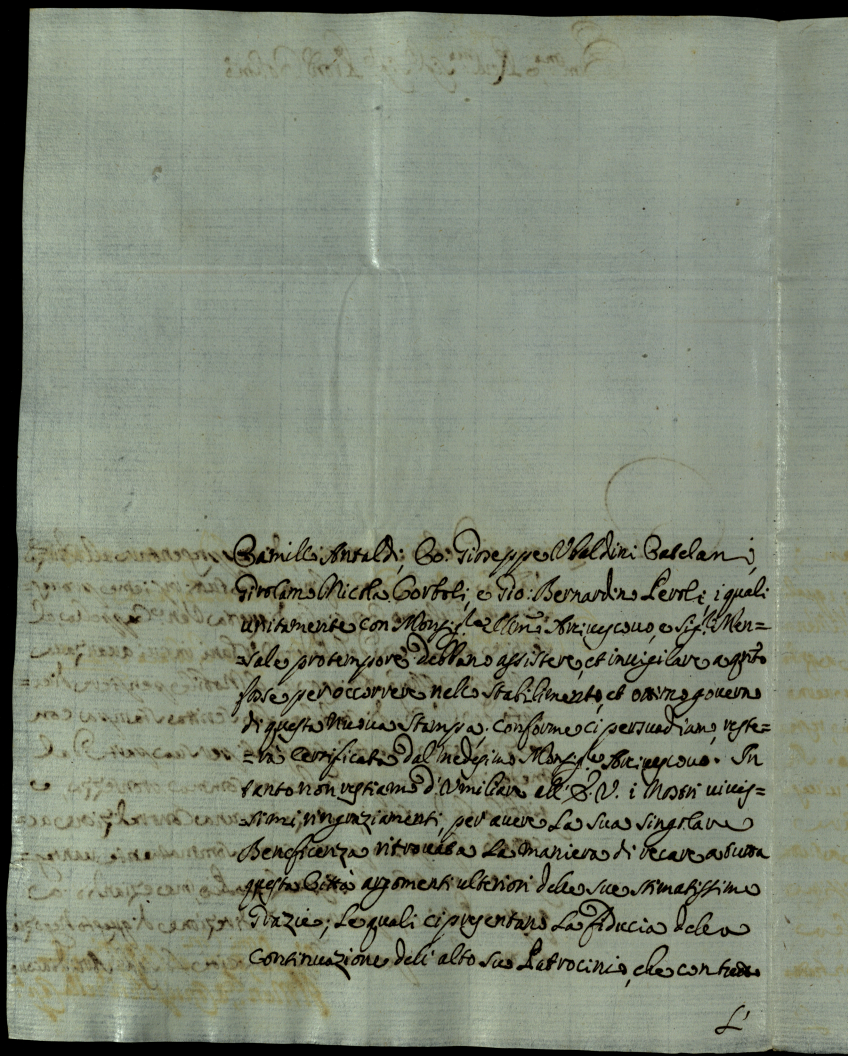 Camillo Antaldi, Co: Gioseppe Ubaldini Catelani,
Girolamo Nicola Corboli, e Gio: Bernardino Peroli, i quali
unitamente con Monsig.re Ill.mo Arcivescovo, e Sig.r Men=
=sale protempore debbano assistere, et invigilare a q.nto
fosse per occorrere nello stabilimento, et ottimo governo
di questa nuova Stampa, conforme ci persuadiamo, reste=
=rà certificata dal medesimo Monsig.re Arcivescovo. In
tanto non restiamo d'umiliare all' E. V. i Nostri viviss=
=simi ringraziamenti, per avere la sua singolare
Beneficenza ritrovata la maniera di recare a tutta
questa Città argomenti ulteriori delle sue stimatissime
Grazie; le quali ci presentano la fiducia della
continuazione dell' alto suo Patrocinio, che con tutto
L'